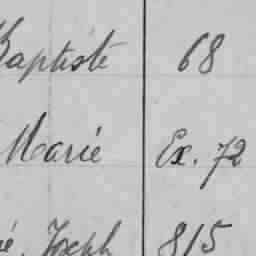 Baptiste 68
Marie Ex. 72
Joseph 815